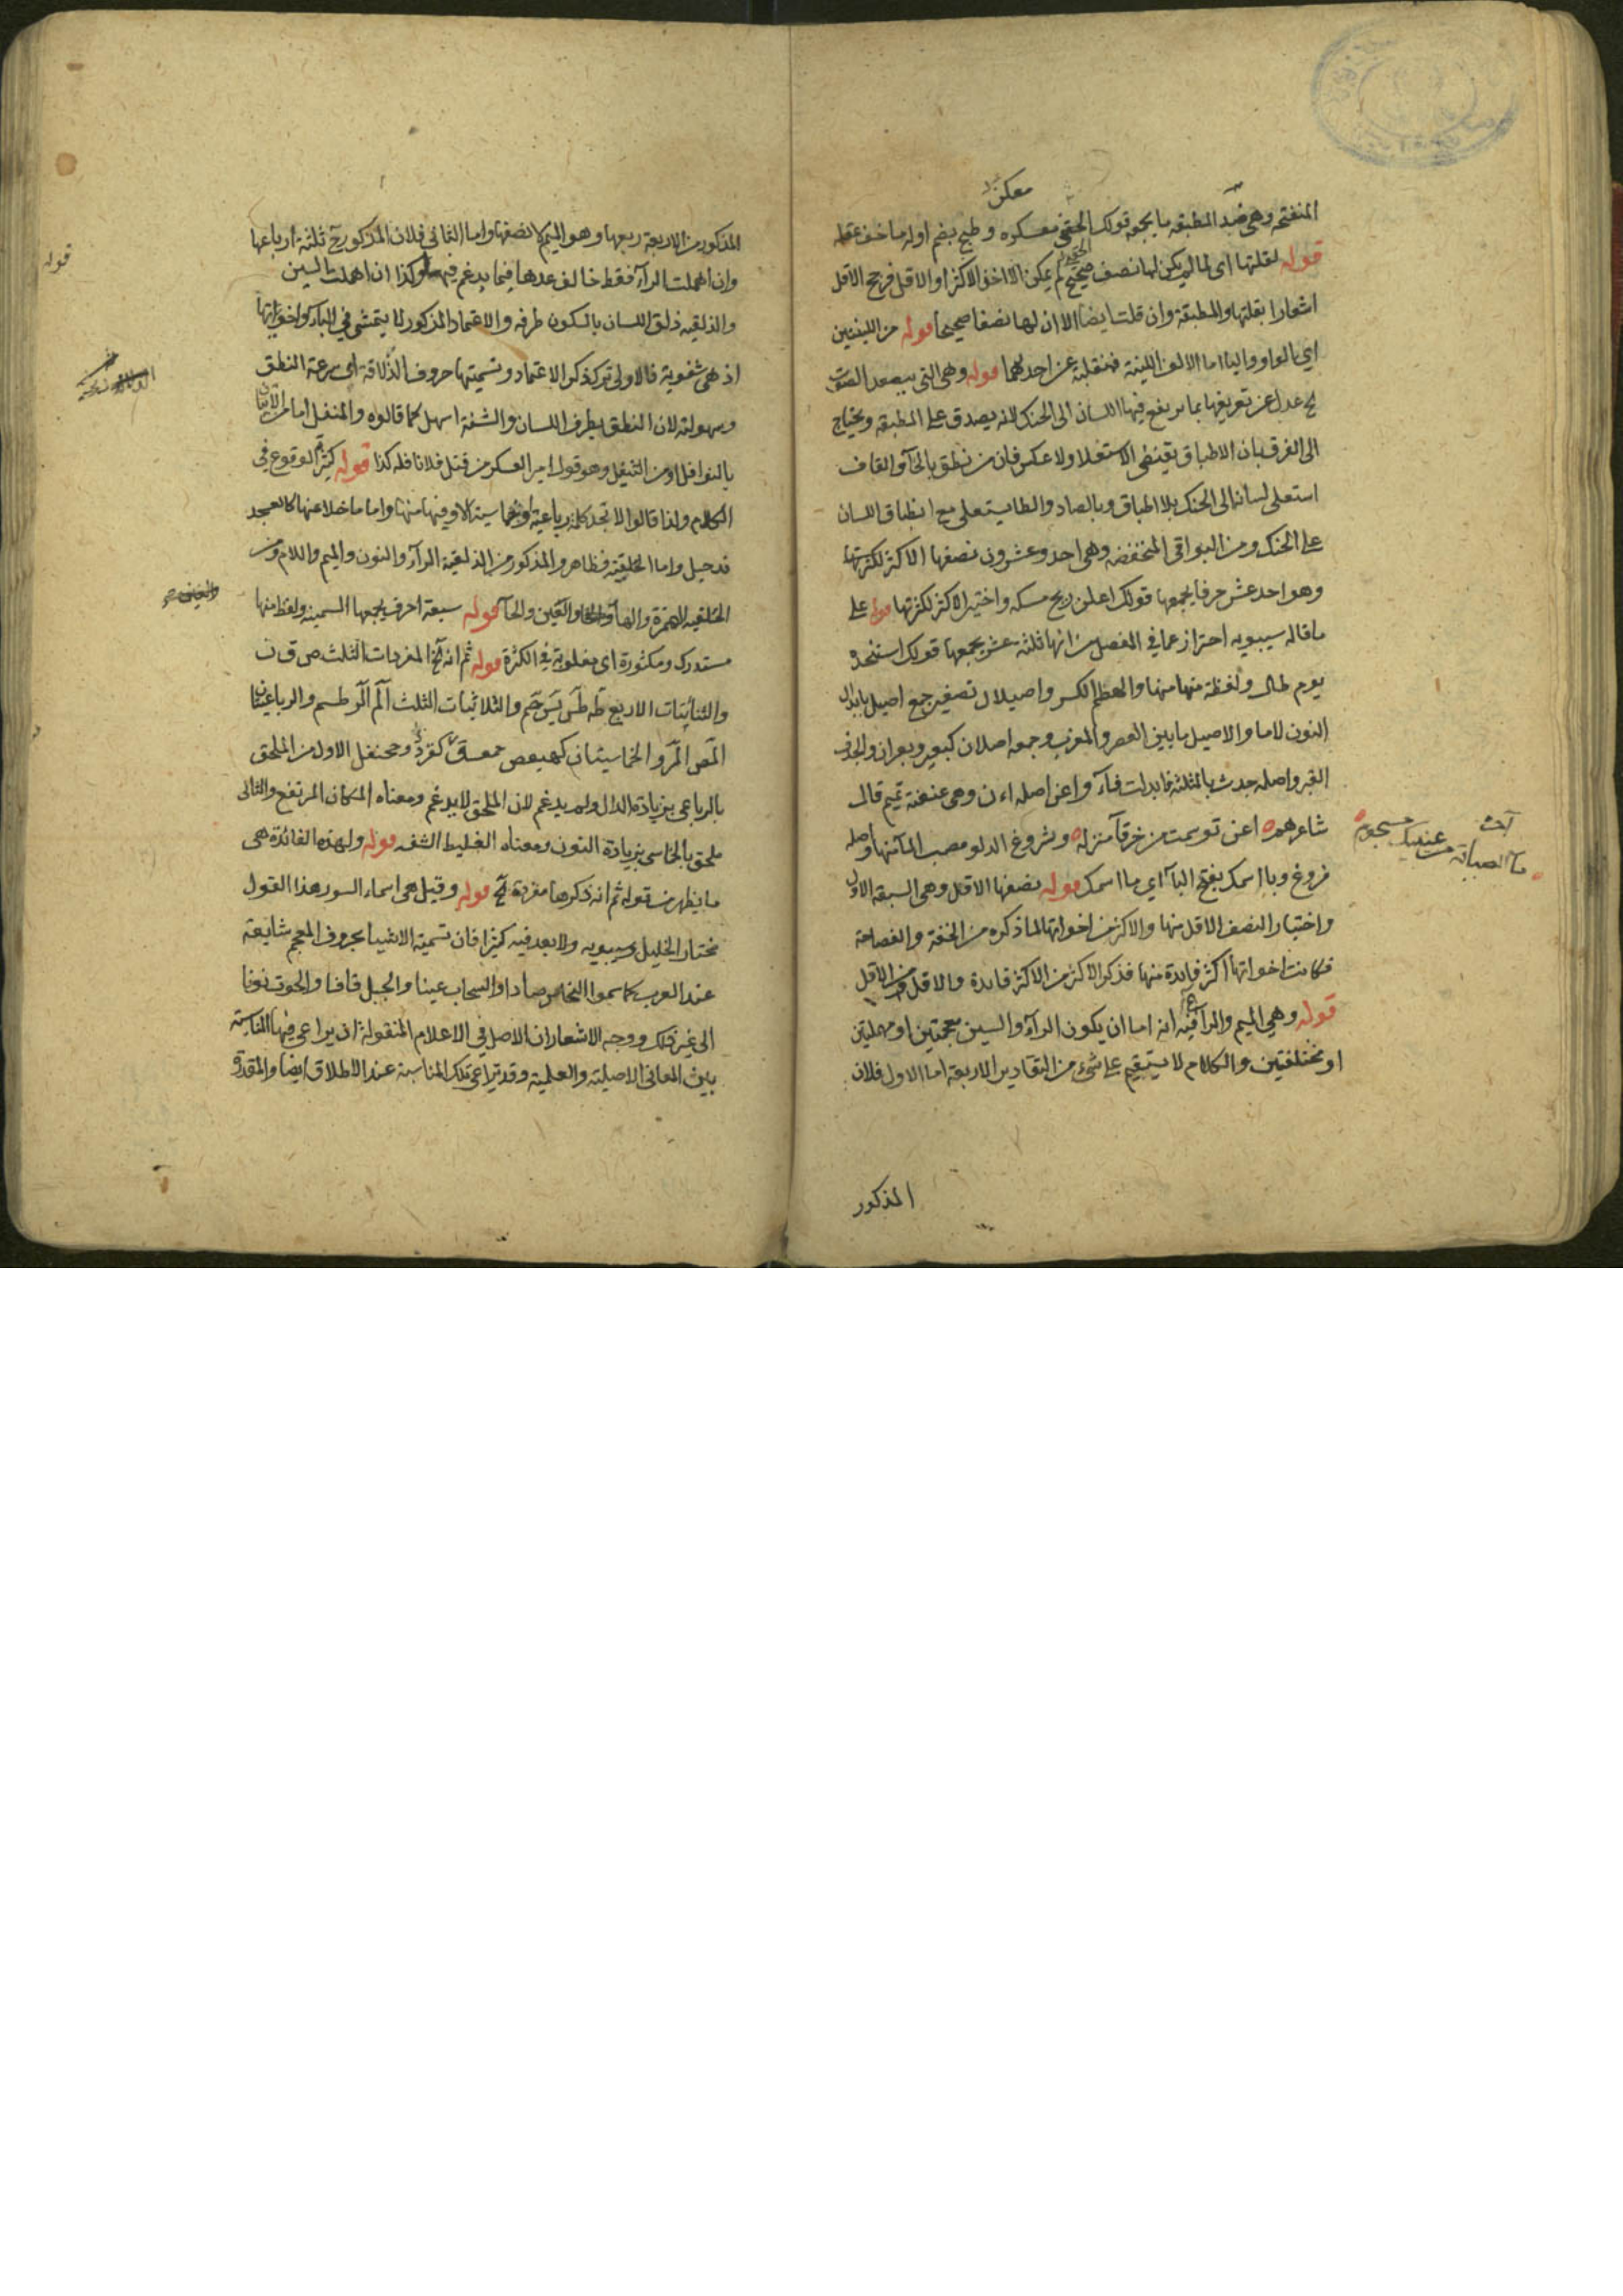 معكن
المنفتحة وهي ضد المطبقة ما يجمعه قولك الحقني معسكره وطبيخ بضم اوله ما خف عقله
قوله لقلتها اى لما لم يكن لها نصف صحيح لم يمكن الا اخذ الاكثر او الاقل فرجح الاقل
اشعارا بقلتها والمطبقة وان قلت ايضا الا ان لها نصفا صحيحا قوله من اللينتين
اي الواو والياء اما الالف اللينة فمنقلبة عن احديهما قوله وهي التي يتصعد الصوت
الخ عدل عن تعريفها بما يرتفع فيها اللسان الى الحنك لانه يصدق على المطبقة ويحتاج
الى الفرق بان الاطباق يقتضي الاستعلا ولا عكس فان من نطق بالخآ والقاف
استعلى لسانه الى الحنك بلا اطباق وبالصاد والطا يستعلى مع انطباق اللسان
على الحنك ومن البواقى المنخفضة وهي احد وعشرون نصفها الاكثر لكثرتها
وهو احد عشر حرفا يجمعها قولك اعلن ريح مسكه واختير الاكثر لكثرتها قوله على
ما قاله سيبويه احتراز عما في المفصل من انها ثلثة عشر يجمعها قولك استنجده
يوم طال ولفظة منها منها والعظم الكسر واصيلال تصغير جمع اصيل بابدال
النون لاما والاصيل ما بين العصر والمغرب وجمعه اصلان كبعير وبعران والجدف
القبر واصله جدث بالمثلثة فابدلت فآء واعن اصله اءن وهي عنعنة تميم قال
شاعرهم اعن توسمت من خرقآء منزلة وثروغ الدلو مصب المآء منها واصله
فروغ وبا اسمك بفتح البآء اي ما اسمك قوله نصفها الاقل وهي السبعة الاول
واختيار النصف الاقل منها والاكثر من اخواتها لما ذكره من الخفة والفصاحة
فكانت اخواتها اكثر فايدة منها فذكر الاكثر من الاكثر فايدة والاقل من الاقل
قوله وهي الميم والرآ فيه انه اما ان يكون الرآء والسين معجمتين او مهملتين
او مختلفتين والكلام لا يستقيم على شيء من التقادير الاربعة اما الاول فلان
المذكور
مآء الصبابة من عينيك مسجوم
المذكور من الاربعة ربعها وهو الميم لا نصفها واما الثاني فلان المذكور ح ثلثة ارباعها
وان اهملت الرآء فقط خالف عدها فيما يدغم فيها وكذا ان اهملت السين
والذلقية ذلق اللسان بالسكون طرفه والاعتماد المذكور لا يتمشى في البآء واخواتها
اذ هي شفوية فالاولى ترك ذكر الاعتماد وتسميتها حروف الذلاقة اى سرعة النطق
وسهولته لان النطق بطرف اللسان والشفة اسهل كما قالوه والمنفل اما من الاتيان
بالنوافل او من التنفيل وهو قول امير العسكر من قتل فلانا فله كذا قوله كثير الوقوع في
الكلام ولذا قالوا لا تجد كلمة رباعية او خماسية الا وفيها منها واما ما خلا عنها كالعسجد
فدخيل واما الحلقية فظاهر والمذكور من الذلقية الرآء والنون والميم واللام ومن
الحلقية الهمزة والهآء والعين والحآء قوله سبعة احرف يجمعها السمينه ولفظ منها
مستدرك ومكثورة اى مغلوبة في الكثرة قوله ثم انه الخ المفردات الثلث ص ق ن
والثنائيات الاربع طه طس يس حم والثلاثيات الثلث الم الر طسم والرباعيتان
المص المر والخماسيتان كهيعص حمعسق كقردد وجحنفل الاول من الملحق
بالرباعى بزيادة الدال ولم يدغم لان الملحق لا يدغم ومعناه المكان المرتفع والثانى
ملحق بالخماسى بزيادة النون ومعناه الغليط الشفة قوله ولهذه الفائدة هى
ما يظهر من قوله ثم انه ذكرها مفردة الخ قوله وقيل هي اسماء السور هذا القول
مختار الخليل وسيبويه ولا بعد فيه كثيرا فان تسمية الاشيا بحروف المعجم شايعة
عند العرب كما سموا النحاس صادا والسحاب عينا والجبل قافا والحوت نونا
الى غير ذلك ووجه الاشعار ان الاصل في الاعلام المنقولة ان يراعى فيها المناسبة
بين المعانى الاصلية والعلمية وقد يراعى تلك المناسبة عند الاطلاق ايضا والمقدرة
قوله